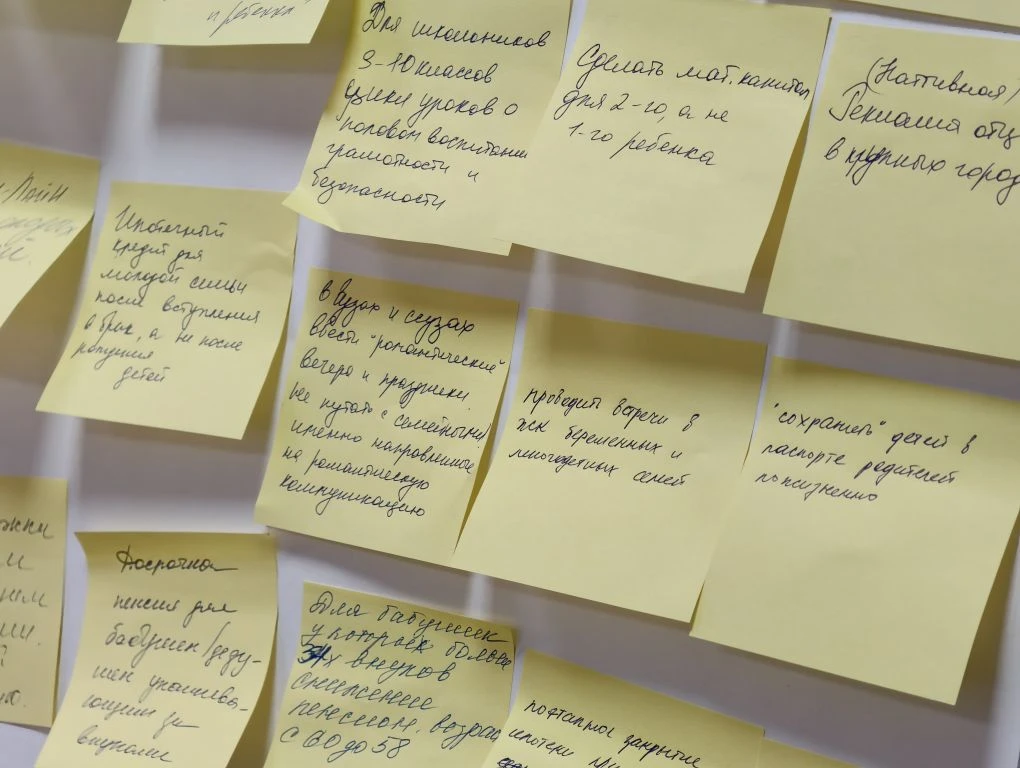 и ребенка
Для школьников
9-10 классов
циклы уроков о
половом воспитании
грамотности и
безопасности
Сделать мат. капитал
для 2-го, а не
1-го ребенка
(Нативная)
Реклама отц
в крупных город
Ипотечный
кредит для
молодой семьи
после вступления
в брак, а не после
рождения
детей
в вузах и ссузах
ввести "романтические"
вечера и праздники.
не путать с семейными,
именно направленные
на романтическую
коммуникацию
проводить встречи в
жк беременных и
многодетных семей
"сохранять" детей в
паспорте родителей
пожизненно
Досрочная
пенсия для
бабушек/деду-
шек ухажива-
ющим за
внуками
Для бабушек
у которых больше
х внуков
снижение
пенсион. возрас
с 60 до 58
поэтапное закрытие
ипотеки